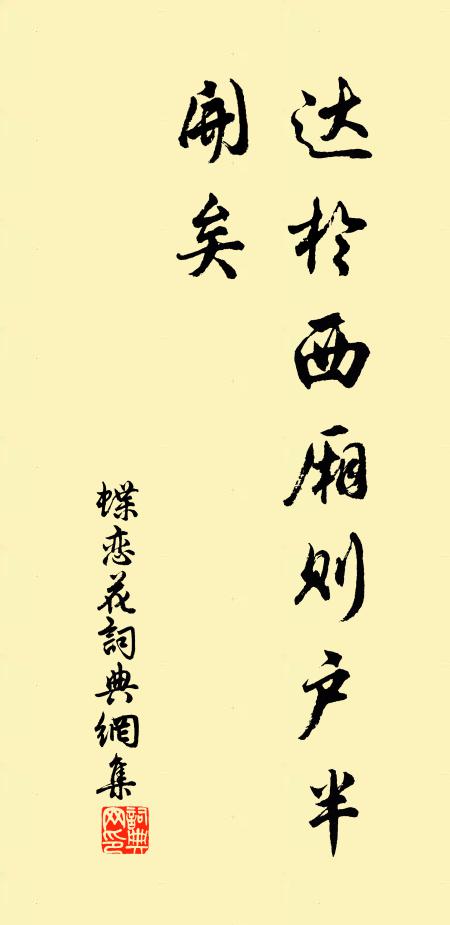 达於西厢则户半
開矣
蝶恋花詞典網集
詞典
网印